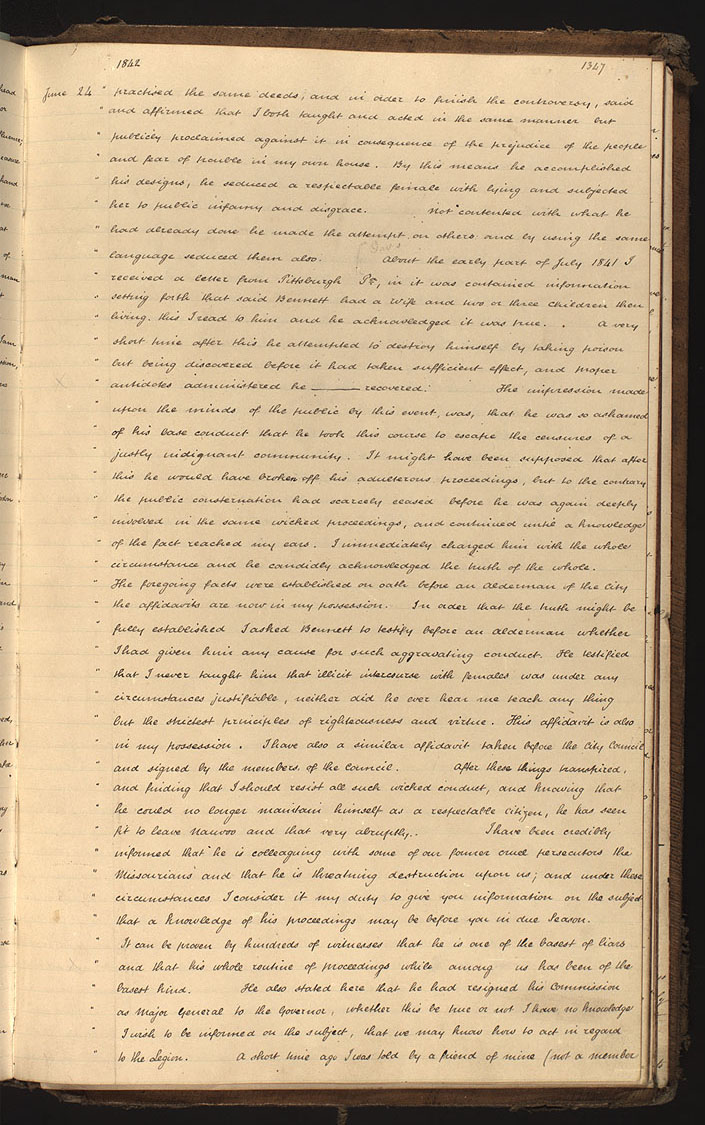 1842 1347
June 24 " practised the same deeds; and in oder to finish the controversy, said
" and affirmed that I both taught and acted in the same manner but
" publicly proclaimed against it in consequence of the prejudice of the people
" and fear of trouble in my own house. By this means he accomplished
" his designs; he seduced a respectable female with lying and subjected
" her to public infamy and disgrace. Not contented with what he
" had already done he made the attempt on others and by using the same
" language seduced them also. About the early part of July 1841 I
" received a letter from Pittsburgh Pa; in it was contained information
" setting forth that said Bennett had a wife and two or three children then
" living. this I read to him and he acknowledged it was true. . A very
" short time after this he attempted to destroy himself by taking poison
" but being discovered before it had taken sufficient effect, and proper
" antidotes administered he ——— recovered. The impression made
" upon the minds of the public by this event, was, that he was so ashamed
" of his base conduct that he took this course to escape the censures of a
" justly indignant community. It might have been supposed that after
" this he would have broken off his adulterous proceedings, but to the contrary
" the public consternation had scarcely ceased before he was again deeply
" involved in the same wicked proceedings, and continued until a knowledge
" of the fact reached my ears. I immediately charged him with the whole
" circumstance and he candidly acknowledged the truth of the whole.
" The foregoing facts were established on oath before an Alderman of the City
" the affidavits are now in my possession. In oder that the truth might be
" fully established I asked Bennett to testify before an alderman whether
" I had given him any cause for such aggravating conduct. He testified
" that I never taught him that illicit intercourse with females was under any
" circumstances justifiable, neither did he ever hear me teach any thing
" but the strictest principles of righteousness and virtue. This affidavit is also
" in my possession. I have also a similar affidavit taken before the City Council
" and signed by the members of the Council. After these things transpired,
" and finding that I should resist all such wicked conduct, and knowing that
" he could no longer maintain himself as a respectable citizen, he has seen
" fit to leave Nauvoo and that very abruptly.. I have been credibly
" informed that he is colleaguing with some of our former cruel persecutors the
" Missourians and that he is threatning destruction upon us; and under these
" circumstances I consider it my duty to give you information on the subject
" that a knowledge of his proceedings may be before you in due Season.
" It can be proven by hundreds of witnesses that he is one of the basest of liars
" and that his whole routine of proceedings while among us has been of the
" basest kind. He also stated here that he had resigned his Commission
" as Major General to the Governor, whether this be true or not I have no knowledge
" I wish to be informed on the subject, that we may know how to act in regard
" to the Legion. A short time ago I was told by a friend of mine (not a member